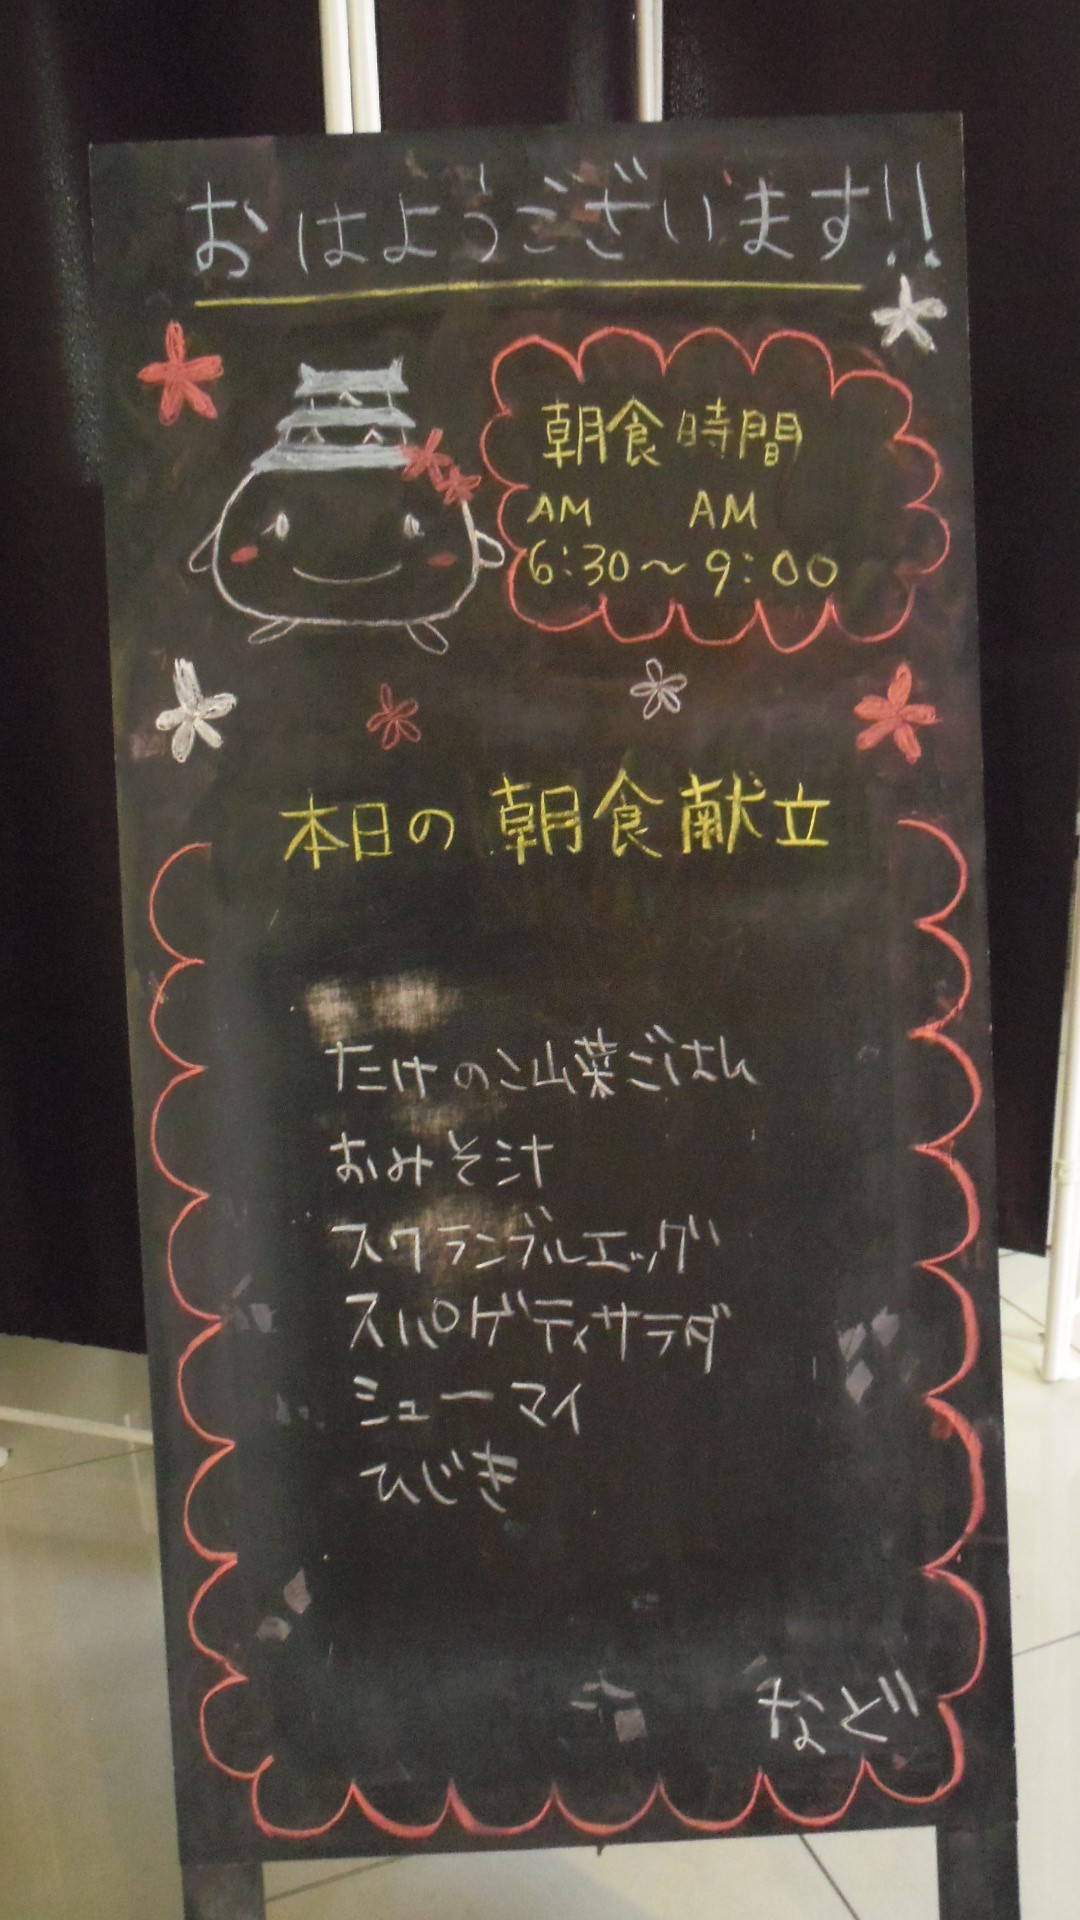 おはようございます!!
朝食時間
AM AM
6:30〜9:00
本日の朝食献立
たけのこ山菜ごはん
おみそ汁
スクランブルエッグ
スパゲティサラダ
シューマイ
ひじき
など